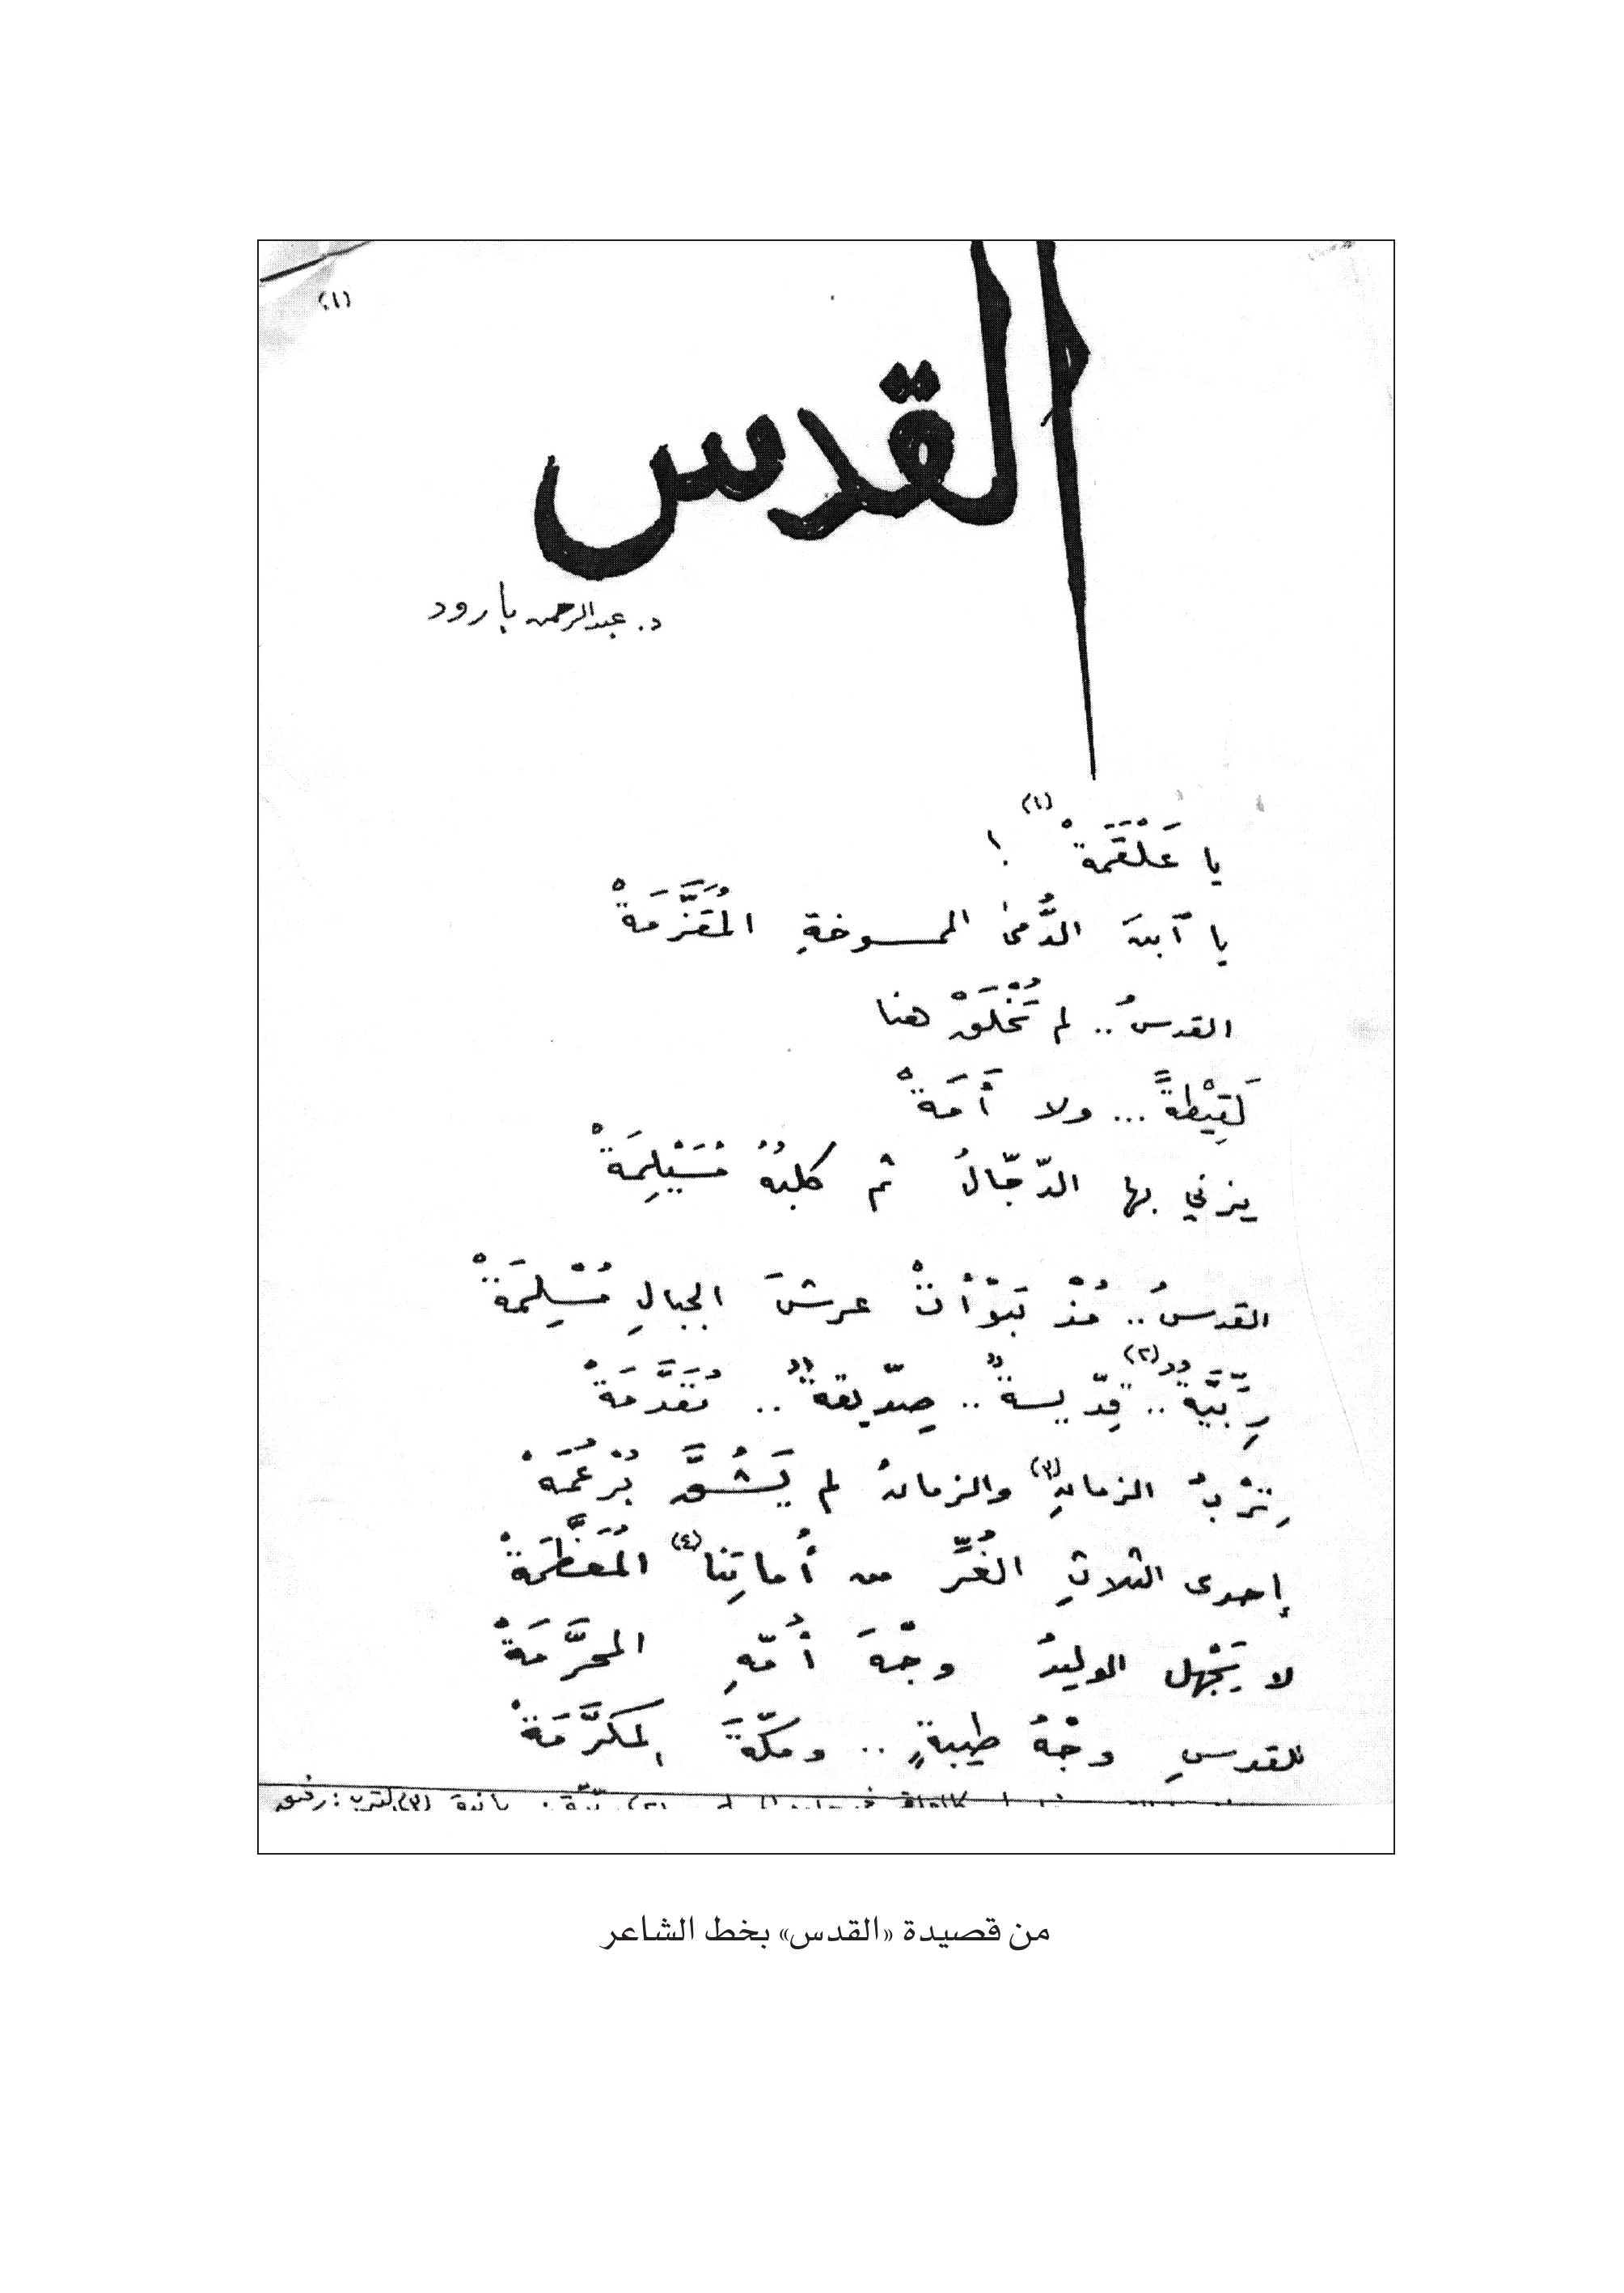 (١)
القدس
د. عبدالرحمن بارود
يا عَلْقَمَةْ (١) !
يا ٱبنَ الدُّمىٰ الممسوخةِ المُقَزَّمَةْ
القدسُ .. لم تُخْلَقْ هنا
لَقِيْطةً ... ولا أَمَةْ
يزني بها الدّجّالُ ثم كلبُهُ مُسَيْلِمَةْ
القدسُ .. مُذْ تَبَوّأتْ عرشَ الجبالِ مُسْلِمَةْ
رِبِّيَّةٌ (٢) .. قِدّيسةٌ .. صِدّيقةٌ .. مُقَدَّمَةْ
تِرْبُ الزمانِ (٣) والزمانُ لم يَشُقَّ بُرْعُمَهْ
إحدى الثلاثِ الغُرِّ من أُماتِنا (٤) المُعَظَّمَةْ
لا يَجْهل الوليدُ وجْهَ أُمّهِ المحرَّمَةْ
للقدسِ وجْهُ طيبةٍ .. ومكّةَ المكرَّمَةْ
(٣) الترب : رفيق
من قصيدة «القدس» بخط الشاعر